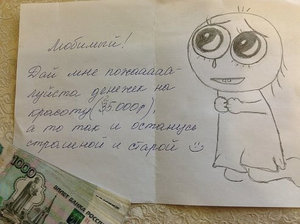 Любимый!
Дай мне пожаааай-
луйста денежек на
красоту (35000р),
а то так и останусь
страшной и старой
1000
БИЛЕТ БАНКА РОССИИ